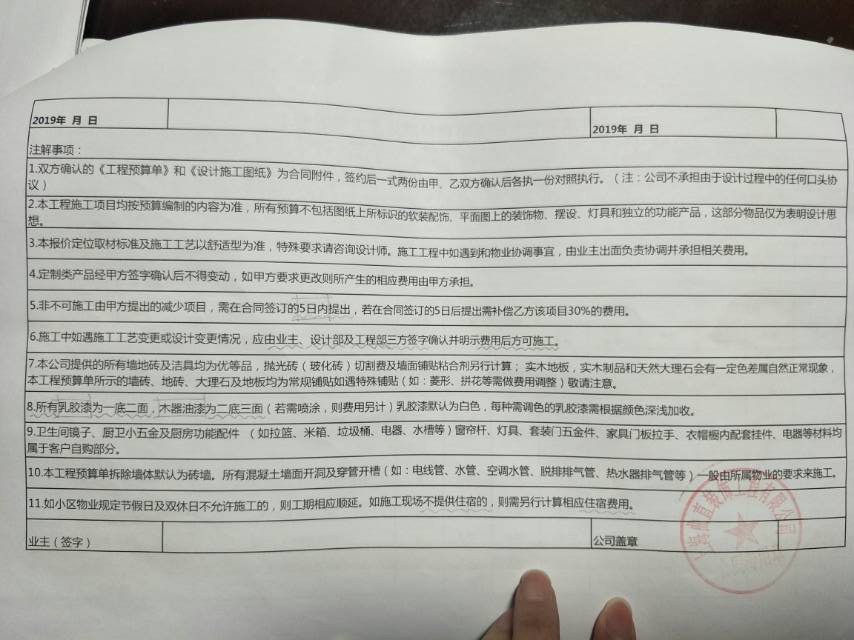 2019年 月 日
2019年 月 日
注解事项：
1.双方确认的《工程预算单》和《设计施工图纸》为合同附件，签约后一式两份由甲、乙双方确认后各执一份对照执行。（注：公司不承担由于设计过程中的任何口头协
议）
2.本工程施工项目均按预算编制的内容为准，所有预算不包括图纸上所标识的软装配饰、平面图上的装饰物、摆设、灯具和独立的功能产品，这部分物品仅为表明设计思
想。
3.本报价定位取材标准及施工工艺以舒适型为准，特殊要求请咨询设计师。施工工程中如遇到和物业协调事宜，由业主出面负责协调并承担相关费用。
4.定制类产品经甲方签字确认后不得变动，如甲方要求更改则所产生的相应费用由甲方承担。
5.非不可施工由甲方提出的减少项目，需在合同签订的5日内提出，若在合同签订的5日后提出需补偿乙方该项目30%的费用。
6.施工中如遇施工工艺变更或设计变更情况，应由业主、设计部及工程部三方签字确认并明示费用后方可施工。
7.本公司提供的所有墙地砖及洁具均为优等品，抛光砖（玻化砖）切割费及墙面铺贴粘合剂另行计算；实木地板，实木制品和天然大理石会有一定色差属自然正常现象，
本工程预算单所示的墙砖、地砖、大理石及地板均为常规铺贴如遇特殊铺贴（如：菱形、拼花等需做费用调整）敬请注意。
8.所有乳胶漆为一底二面，木器油漆为二底三面（若需喷涂，则费用另计）乳胶漆默认为白色，每种需调色的乳胶漆需根据颜色深浅加收。
9.卫生间镜子、厨卫小五金及厨房功能配件 （如拉篮、米箱、垃圾桶、电器、水槽等）窗帘杆、灯具、套装门五金件、家具门板拉手、衣帽橱内配套挂件、电器等材料均
属于客户自购部分。
10.本工程预算单拆除墙体默认为砖墙。所有混凝土墙面开洞及穿管开槽（如：电线管、水管、空调水管、脱排排气管、热水器排气管等）一般由所属物业的要求来施工。
11.如小区物业规定节假日及双休日不允许施工的，则工期相应顺延。如施工现场不提供住宿的，则需另行计算相应住宿费用。
业主（签字）
公司盖章